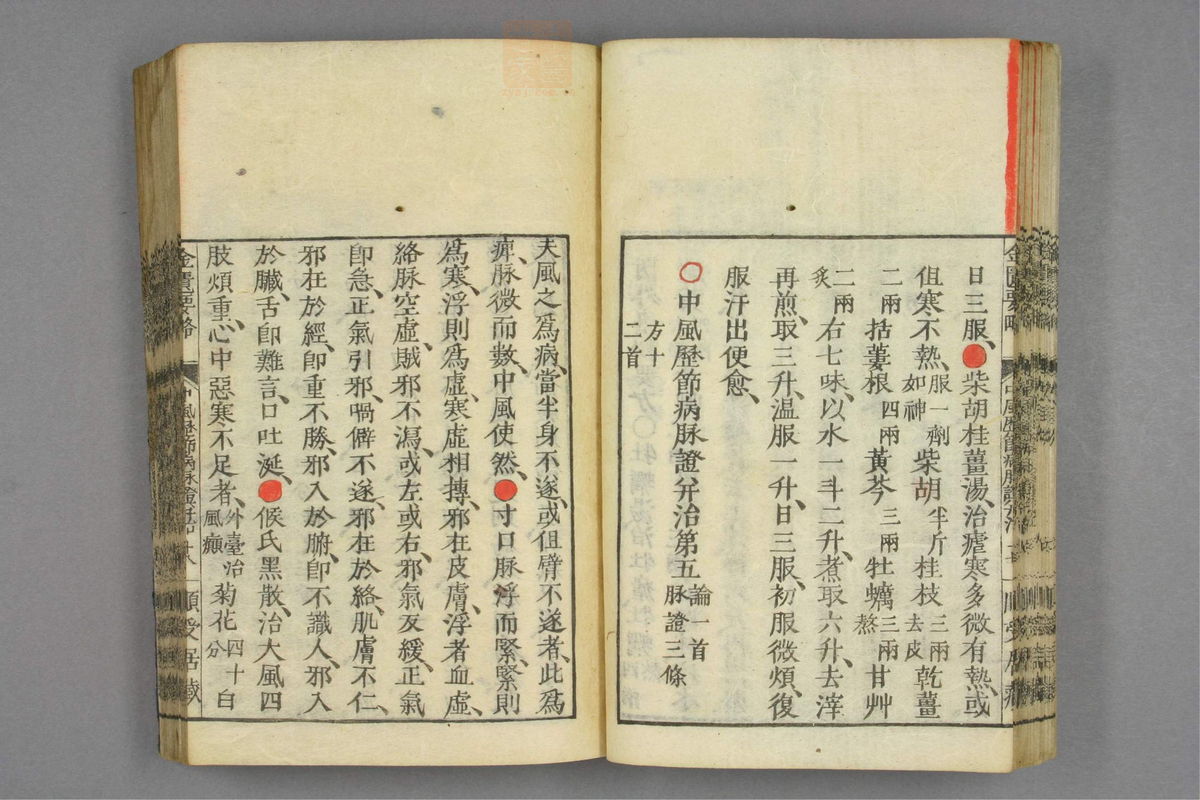 日三服、●柴胡桂薑湯、治瘧寒多微有熱或
但寒不熱、服一劑如神柴胡半斤桂枝三兩去皮乾薑
二兩括蔞根四兩黃芩三兩牡蠣三兩熬甘艸
二兩炙右七味、以水一斗二升、煮取六升、去滓
再煎、取三升、温服一升、日三服、初服微煩、復
服汗出便愈、
○中風歷節病脉證并治第五論一首脉證三條
方十二首
夫風之爲病、當半身不遂、或但臂不遂者、此爲
痺、脉微而數、中風使然、●寸口脉浮而緊、緊則
爲寒、浮則爲虚、寒虚相摶、邪在皮膚、浮者血虚、
絡脉空虚、賊邪不瀉、或左或右、邪氣反緩、正氣
卽急、正氣引邪、喎僻不遂、邪在於絡、肌膚不仁、
邪在於經、卽重不勝、邪入於腑、卽不識人、邪入
於臓、舌卽難言、口吐涎、●候氏黑散、治大風四
肢煩重、心中惡寒不足者、外臺治風癲菊花四十分去白
金匱要略
中風歷節病脉證并治
十八
順受居藏